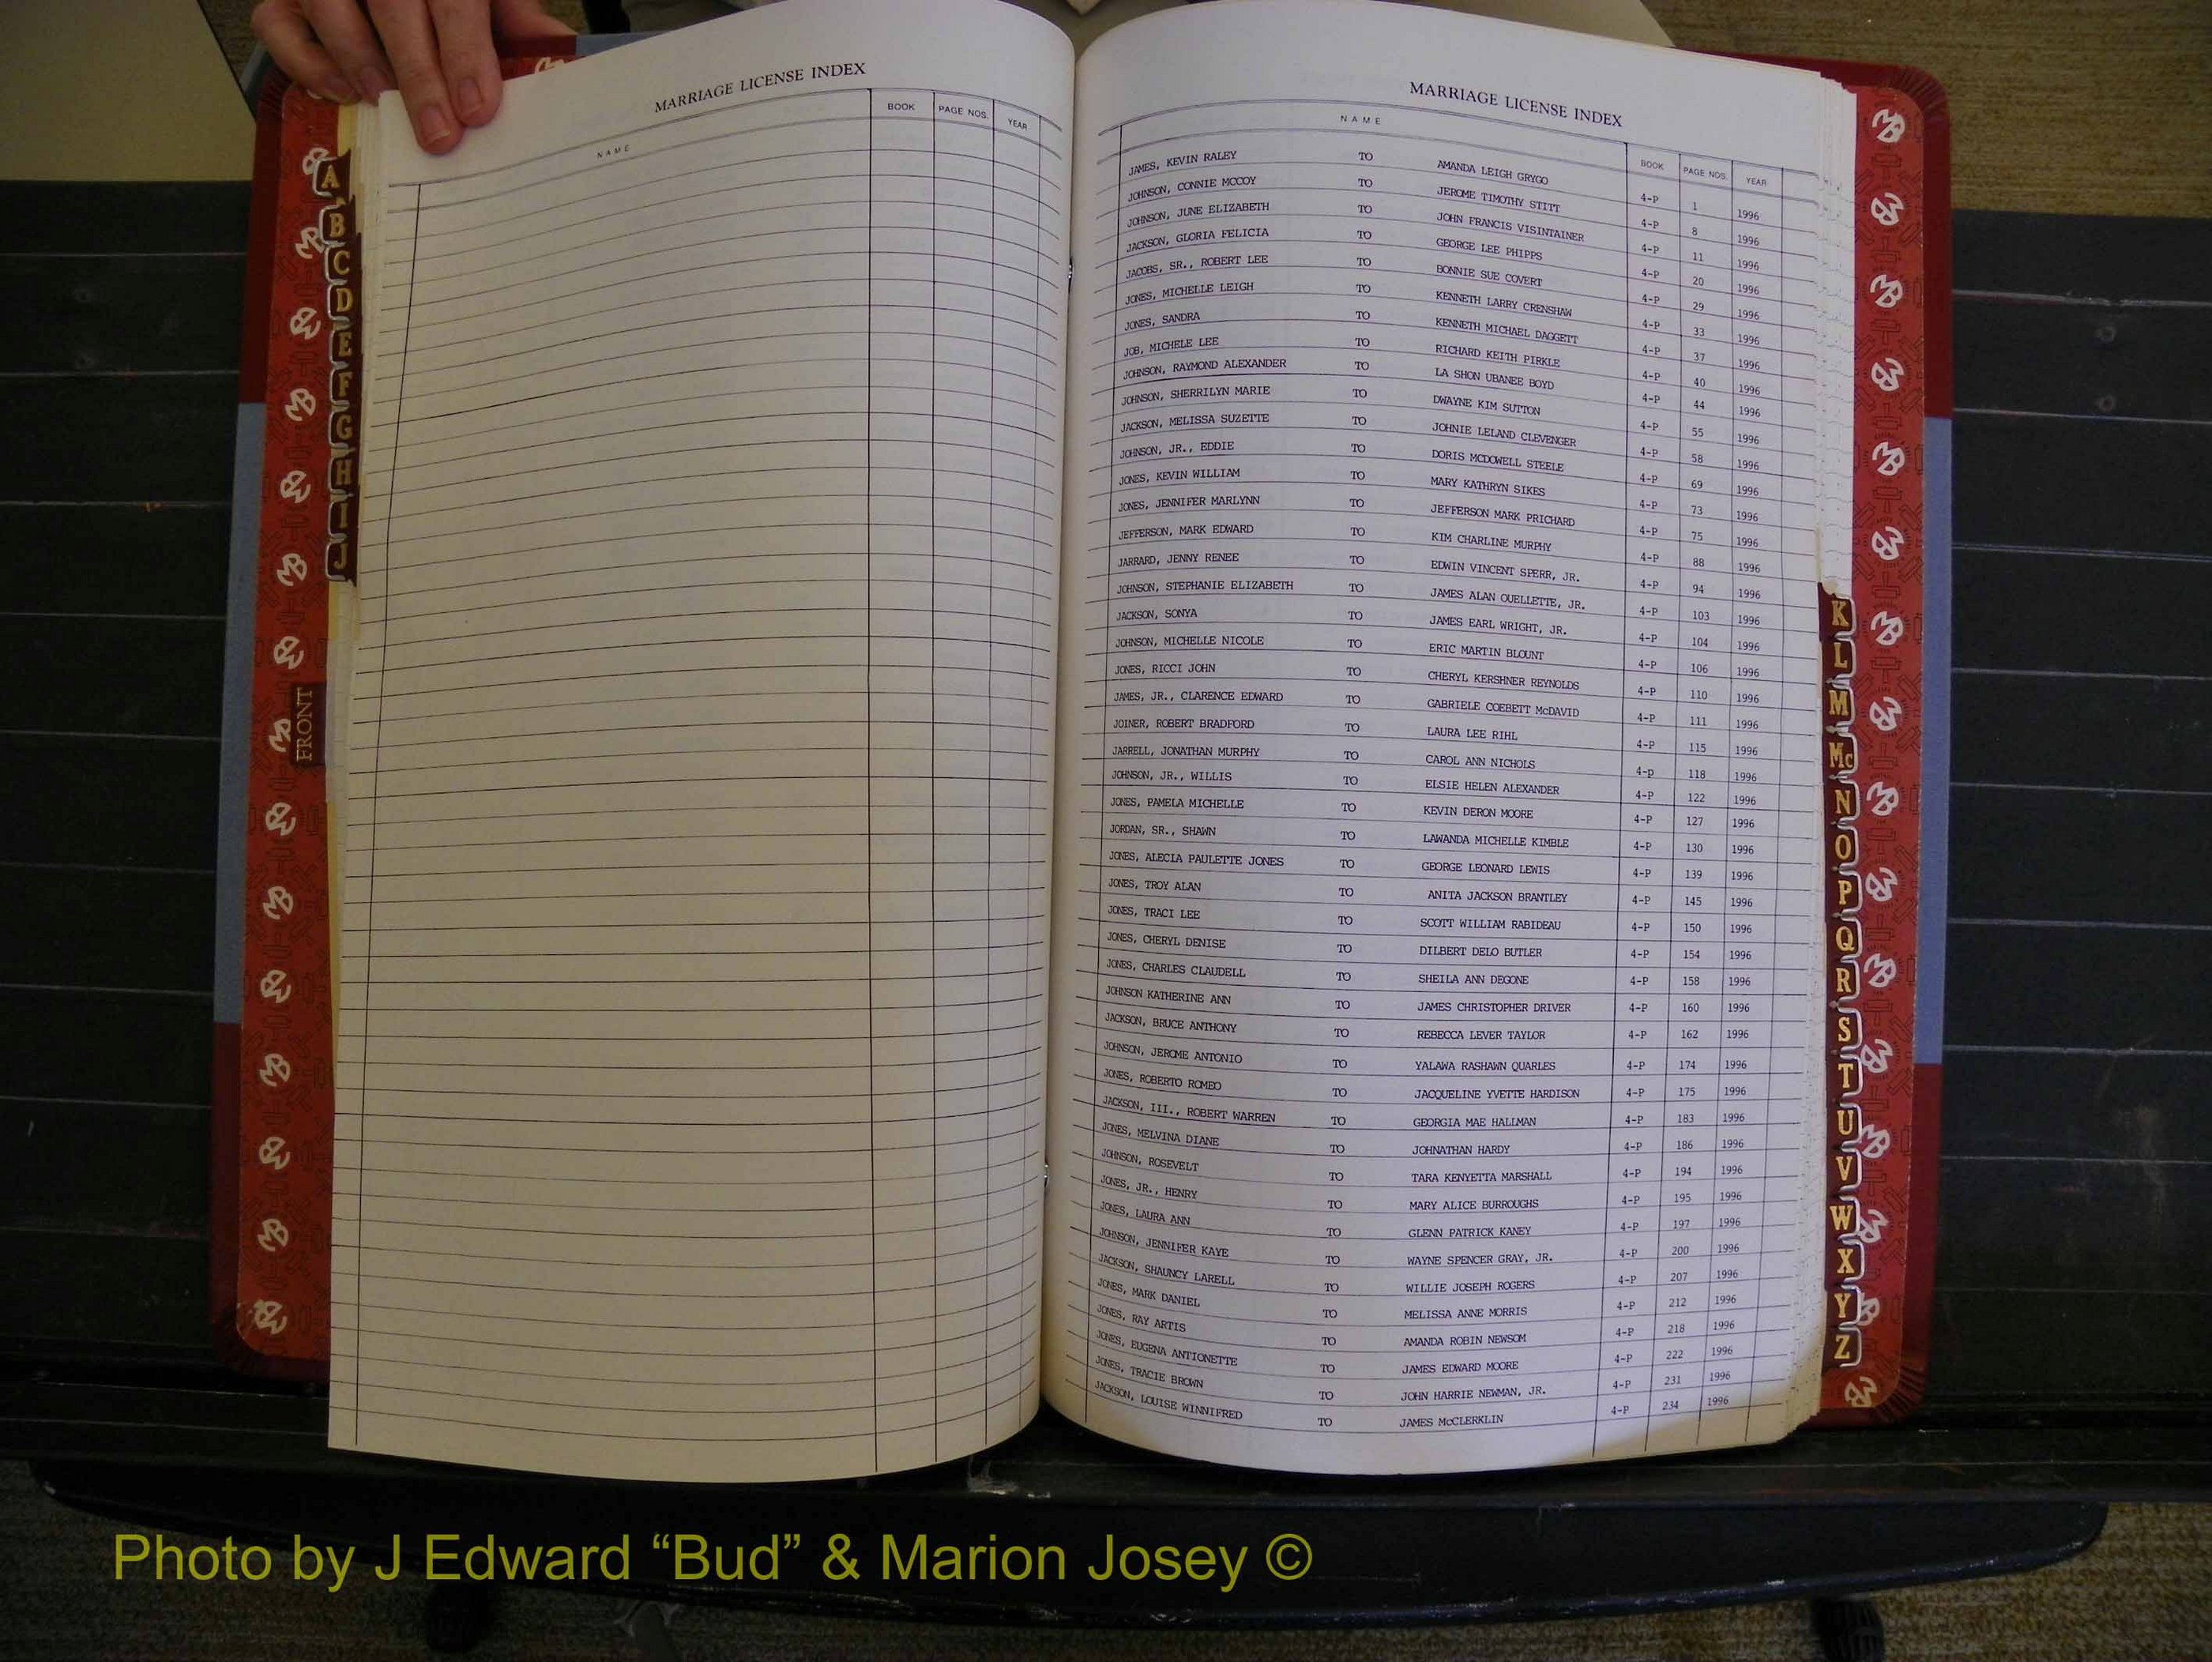 MARRIAGE LICENSE INDEX
NAME BOOK PAGE NOS. YEAR
A
B
C
D
E
F
G
H
I
J
FRONT
MARRIAGE LICENSE INDEX
NAME BOOK PAGE NOS. YEAR
JAMES, KEVIN RALEY TO AMANDA LEIGH GRYGO 4-P 1 1996
JOHNSON, CONNIE MCCOY TO JEROME TIMOTHY STITT 4-P 8 1996
JOHNSON, JUNE ELIZABETH TO JOHN FRANCIS VISINTAINER 4-P 11 1996
JACKSON, GLORIA FELICIA TO GEORGE LEE PHIPPS 4-P 20 1996
JACOBS, SR., ROBERT LEE TO BONNIE SUE COVERT 4-P 29 1996
JONES, MICHELLE LEIGH TO KENNETH LARRY CRENSHAW 4-P 33 1996
JONES, SANDRA TO KENNETH MICHAEL DAGGETT 4-P 37 1996
JOB, MICHELE LEE TO RICHARD KEITH PIRKLE 4-P 40 1996
JOHNSON, RAYMOND ALEXANDER TO LA SHON UBANEE BOYD 4-P 44 1996
JOHNSON, SHERRILYN MARIE TO DWAYNE KIM SUTTON 4-P 55 1996
JACKSON, MELISSA SUZETTE TO JOHNIE LELAND CLEVENGER 4-P 58 1996
JOHNSON, JR., EDDIE TO DORIS MCDOWELL STEELE 4-P 69 1996
JONES, KEVIN WILLIAM TO MARY KATHRYN SIKES 4-P 73 1996
JONES, JENNIFER MARLYNN TO JEFFERSON MARK PRICHARD 4-P 75 1996
JEFFERSON, MARK EDWARD TO KIM CHARLINE MURPHY 4-P 88 1996
JARRARD, JENNY RENEE TO EDWIN VINCENT SPERR, JR. 4-P 94 1996
JOHNSON, STEPHANIE ELIZABETH TO JAMES ALAN OUELLETTE, JR. 4-P 103 1996
JACKSON, SONYA TO JAMES EARL WRIGHT, JR. 4-P 104 1996
JOHNSON, MICHELLE NICOLE TO ERIC MARTIN BLOUNT 4-P 106 1996
JONES, RICCI JOHN TO CHERYL KERSHNER REYNOLDS 4-P 110 1996
JAMES, JR., CLARENCE EDWARD TO GABRIELE COEBETT McDAVID 4-P 111 1996
JOINER, ROBERT BRADFORD TO LAURA LEE RIHL 4-P 115 1996
JARRELL, JONATHAN MURPHY TO CAROL ANN NICHOLS 4-p 118 1996
JOHNSON, JR., WILLIS TO ELSIE HELEN ALEXANDER 4-P 122 1996
JONES, PAMELA MICHELLE TO KEVIN DERON MOORE 4-P 127 1996
JORDAN, SR., SHAWN TO LAWANDA MICHELLE KIMBLE 4-P 130 1996
JONES, ALECIA PAULETTE JONES TO GEORGE LEONARD LEWIS 4-P 139 1996
JONES, TROY ALAN TO ANITA JACKSON BRANTLEY 4-P 145 1996
JONES, TRACI LEE TO SCOTT WILLIAM RABIDEAU 4-P 150 1996
JONES, CHERYL DENISE TO DILBERT DELO BUTLER 4-P 154 1996
JONES, CHARLES CLAUDELL TO SHEILA ANN DEGONE 4-P 158 1996
JOHNSON KATHERINE ANN TO JAMES CHRISTOPHER DRIVER 4-P 160 1996
JACKSON, BRUCE ANTHONY TO REBECCA LEVER TAYLOR 4-P 162 1996
JOHNSON, JEROME ANTONIO TO YALAWA RASHAWN QUARLES 4-P 174 1996
JONES, ROBERTO ROMEO TO JACQUELINE YVETTE HARDISON 4-P 175 1996
JACKSON, III., ROBERT WARREN TO GEORGIA MAE HALLMAN 4-P 183 1996
JONES, MELVINA DIANE TO JOHNATHAN HARDY 4-P 186 1996
JOHNSON, ROSEVELT TO TARA KENYETTA MARSHALL 4-P 194 1996
JONES, JR., HENRY TO MARY ALICE BURROUGHS 4-P 195 1996
JONES, LAURA ANN TO GLENN PATRICK KANEY 4-P 197 1996
JOHNSON, JENNIFER KAYE TO WAYNE SPENCER GRAY, JR. 4-P 200 1996
JACKSON, SHAUNCY LARELL TO WILLIE JOSEPH ROGERS 4-P 207 1996
JONES, MARK DANIEL TO MELISSA ANNE MORRIS 4-P 212 1996
JONES, RAY ARTIS TO AMANDA ROBIN NEWSOM 4-P 218 1996
JONES, EUGENA ANTIONETTE TO JAMES EDWARD MOORE 4-P 222 1996
JONES, TRACIE BROWN TO JOHN HARRIE NEWMAN, JR. 4-P 231 1996
JACKSON, LOUISE WINNIFRED TO JAMES McCLERKLIN 4-P 234 1996
K
L
M
Mc
N
O
P
Q
R
S
T
U
V
W
X
Y
Z
Photo by J Edward “Bud” & Marion Josey ©